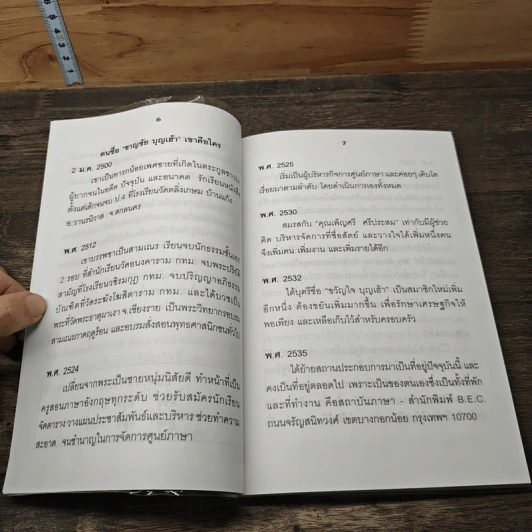 6
คนชื่อ "ชาญชัย บุญเฮ้า" เขาคือใคร
2 ม.ค. 2500
เขาเป็นทารกน้อยเพศชายที่เกิดในตระกูลชาวนา
ผู้ยากจนในอดีต ปัจจุบัน และอนาคต รักเรียนหนังสือ
ตั้งแต่เด็กจนจบ ป.4 ที่โรงเรียนวัดตลิ่งเกษม บ้านแก้ง
อ.วานรนิวาส จ.สกลนคร
พ.ศ. 2512
เขาบรรพชาเป็นสามเณร เรียนจบนักธรรมชั้นเอก
2 รอบ ที่สำนักเรียนวัดอนงคาราม กทม. จบพระปริยัติ
สามัญที่โรงเรียนวชิรมกุฏ กทม. จบปริญญาอภิธรรม
บัณฑิตที่วัดระฆังโฆสิตาราม กทม. และได้บวชเป็น
พระที่วัดพระธาตุผาเงา จ.เชียงราย เป็นพระวิทยากรอบรม
สามเณรภาคฤดูร้อน และอบรมสั่งสอนพุทธศาสนิกชนทั่วไป
พ.ศ. 2524
เปลี่ยนจากพระเป็นชายหนุ่มนิสัยดี ทำหน้าที่เป็น
ครูสอนภาษาอังกฤษทุกระดับ ช่วยรับสมัครนักเรียน
จัดตารางวางแผนประชาสัมพันธ์และบริหาร ช่วยทำความ
สะอาด จนชำนาญในการจัดการศูนย์ภาษา
7
พ.ศ. 2525
เริ่มเป็นผู้บริหารกิจการศูนย์ภาษา และค่อยๆ เติบโต
เรื่อยมาตามลำดับ โดยดำเนินการเองทั้งหมด
พ.ศ. 2530
สมรสกับ "คุณเพ็ญศรี ศรีประสม" เท่ากับมีผู้ช่วย
คิด บริหารจัดการที่ซื่อสัตย์ และวางใจได้เพิ่มหนึ่งคน
จึงเพิ่มคน เพิ่มงาน และเพิ่มรายได้อีก
พ.ศ. 2532
ได้บุตรีชื่อ "ขวัญใจ บุญเฮ้า" เป็นสมาชิกใหม่เพิ่ม
อีกหนึ่ง ต้องขยันเพิ่มมากขึ้น เพื่อรักษาเศรษฐกิจให้
พอเพียง และเหลือเก็บไว้สำหรับครอบครัว
พ.ศ. 2535
ได้ย้ายสถานประกอบการมาเป็นที่อยู่ปัจจุบันนี้ และ
คงเป็นที่อยู่ตลอดไป เพราะเป็นของตนเองซึ่งเป็นทั้งที่พัก
และที่ทำงาน คือสถาบันภาษา - สำนักพิมพ์ B.E.C.
ถนนจรัญสนิทวงศ์ เขตบางกอกน้อย กรุงเทพฯ 10700
5
4
3
2
1